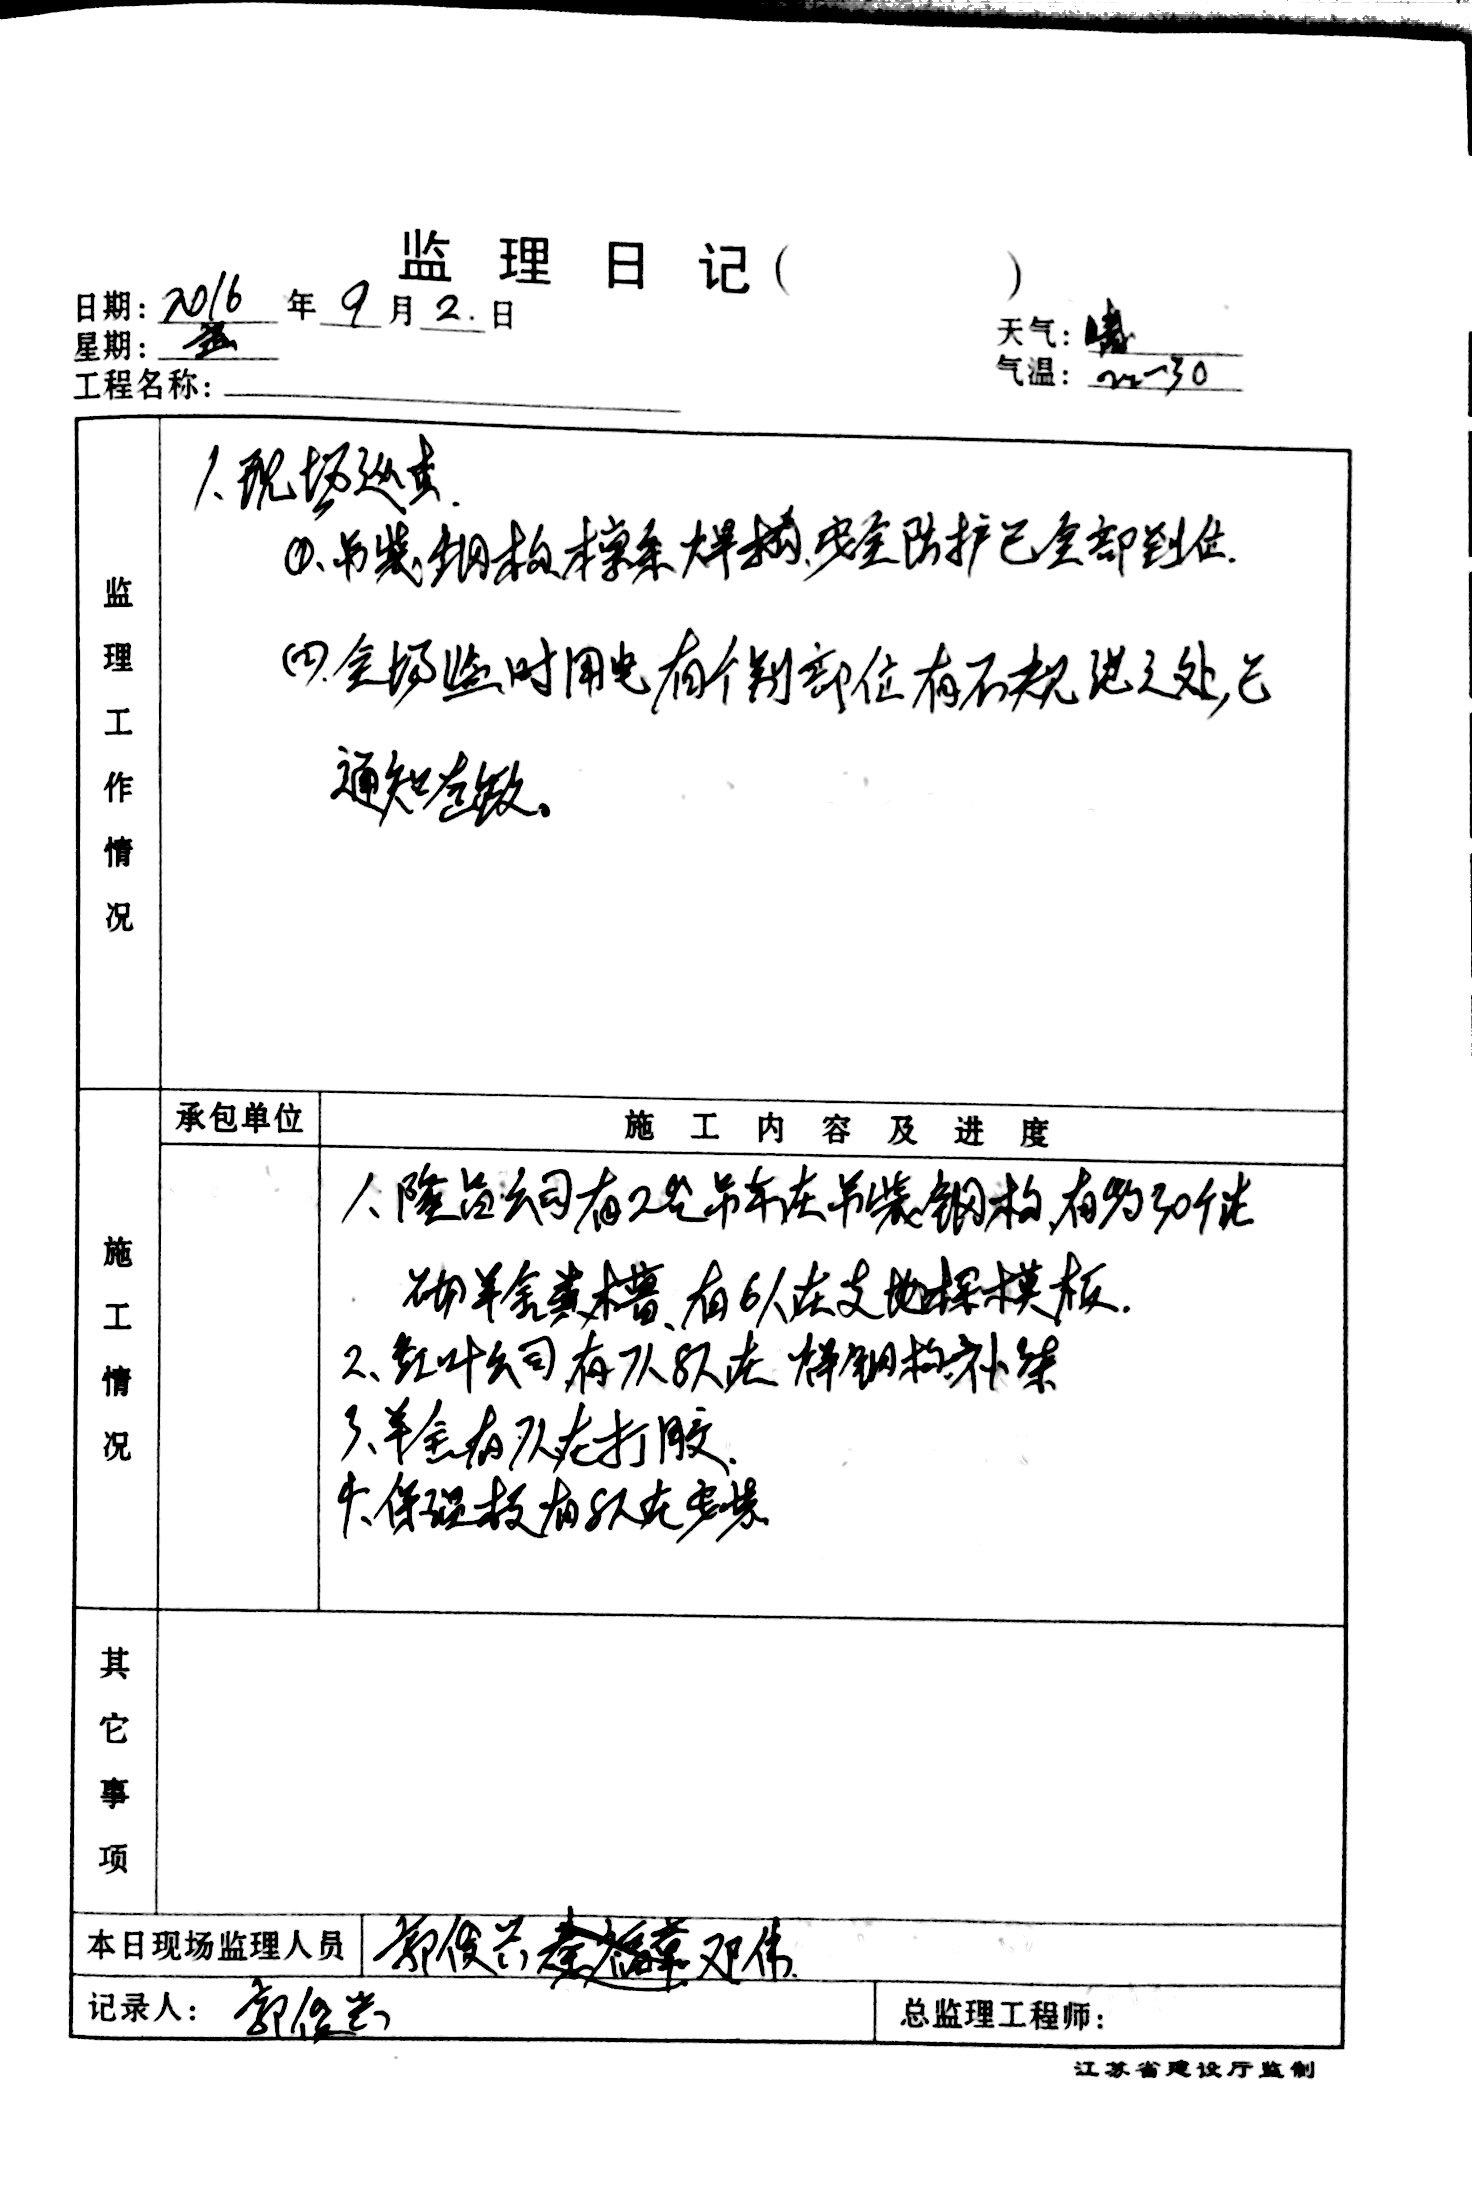 监理日记( )
日期: 2016 年 9 月 2. 日
星期: 五
天气: 晴
工程名称:
气温: 22-30
监理工作情况
1、现场巡查.
①、吊装钢构檩条焊接、安全防护已全部到位.
全场临时用电有个别部位有不规范之处,已
通知整改。
施工情况
承包单位
施工内容及进度
1、隆 公司有2台吊车在吊装钢构、有约30个在
砌羊舍粪槽、有6人在支地梁模板.
2、红叶公司有 8人在焊钢构补条
3、羊舍有7人在打胶.
4、保温板有8人在安装
其它事项
本日现场监理人员 郭俊兴 邓伟.
记录人: 郭俊兴
总监理工程师:
江苏省建设厅监制